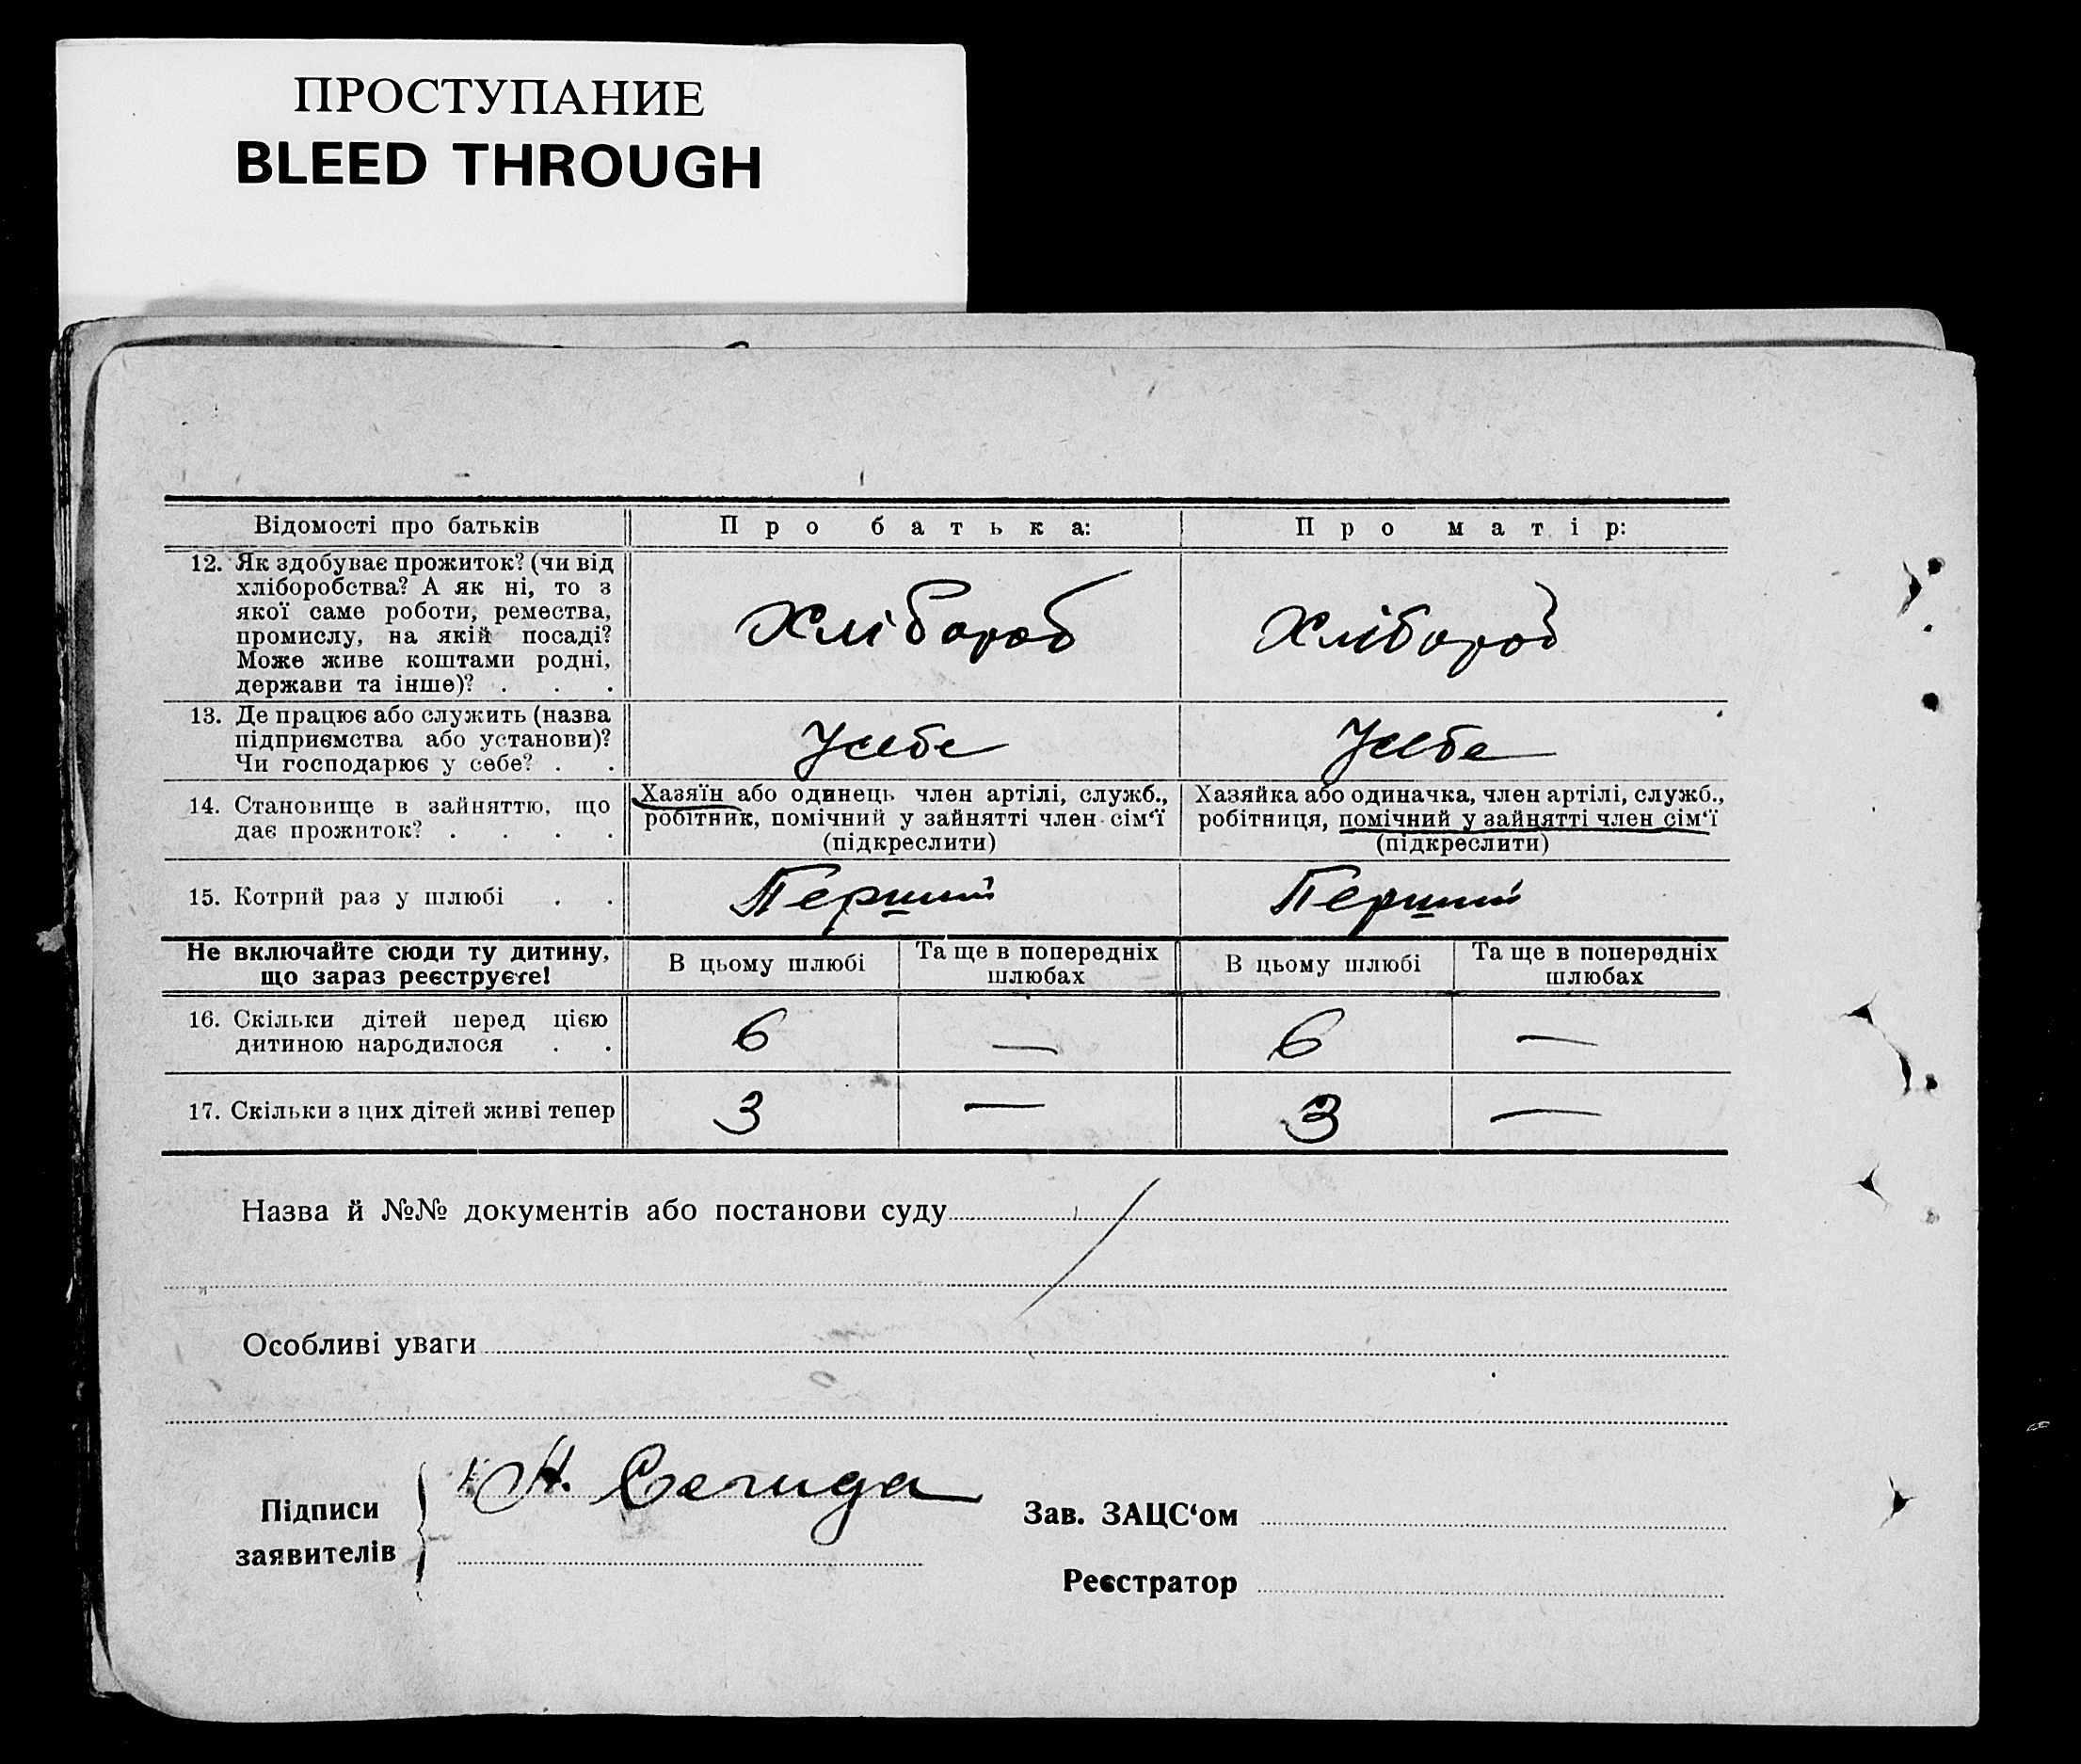 ПРОСТУПАНИЕ
BLEED THROUGH
Відомості про батьків
Про батька:
Про матір:
12. Як здобуває прожиток? (чи від
хліборобства? А як ні, то з
якої саме роботи, ремества,
промислу, на якій посаді?
Може живе коштами родні,
держави та інше)? . . .
Хлібороб
Хлібороб
13. Де працює або служить (назва
підприємства або установи)?
Чи господарює у себе? . .
Усебе
Усебе
14. Становище в зайняттю, що
дає прожиток? . . . .
Хазяїн або одинець член артілі, служб.,
робітник, помічний у зайнятті член сім‘ї
(підкреслити)
Хазяйка або одиначка, член артілі, служб.,
робітниця, помічний у зайнятті член сім‘ї
(підкреслити)
15. Котрий раз у шлюбі . .
Перший
Перший
Не включайте сюди ту дитину,
що зараз реєструєте!
В цьому шлюбі
Та ще в попередніх
шлюбах
В цьому шлюбі
Та ще в попередніх
шлюбах
16. Скільки дітей перед цією
дитиною народилося . .
6
—
6
—
17. Скільки з цих дітей живі тепер
3
—
3
—
Назва й №№ документів або постанови суду
Особливі уваги
Підписи
заявителів
Н. Сегида
Зав. ЗАЦС‘ом
Реєстратор